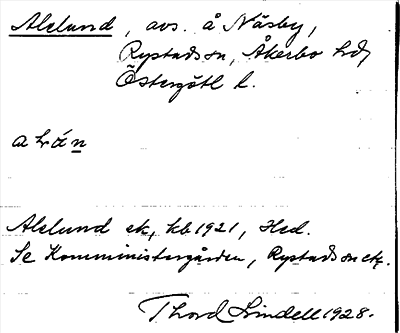 Alelund, avs. å Näsby,
Rystads sn, Åkerbo hd,
Östergötl l.
Alelund ek, kb 1921, Hed.
Se Komministergården, Rystads sn ek.
Thord Lindell 1928.